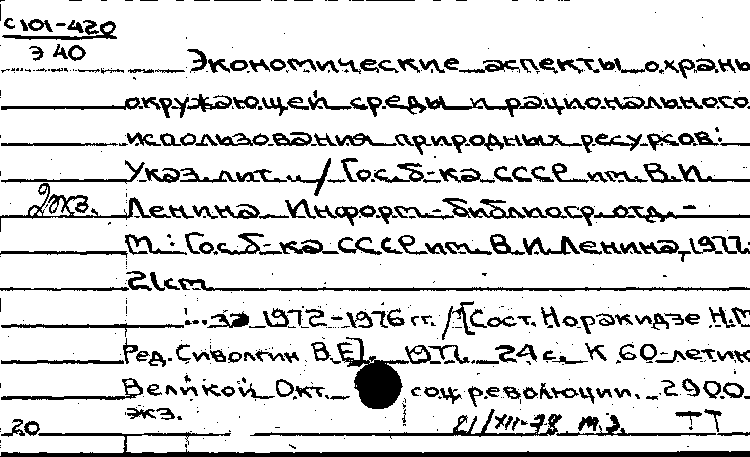 С101-420
Э 40
Экономические аспекты охраны
окружающей среды и рационального
использования природных ресурсов:
Указ. лит. / Гос. б-ка СССР им. В.И.
2 экз.
Ленина. Информ.-библиогр. отд. -
М.: Гос. б-ка СССР им. В.И. Ленина, 1977.
21 см
...за 1972-1976 гг. / [Сост. Норакидзе Н.М.
Ред. Сиволгин В.Е]. 1977. 24 с. К 60-летию
Великой Окт. соц. революции. 2900
экз.
20
21/XII-78 т.э. ТТ